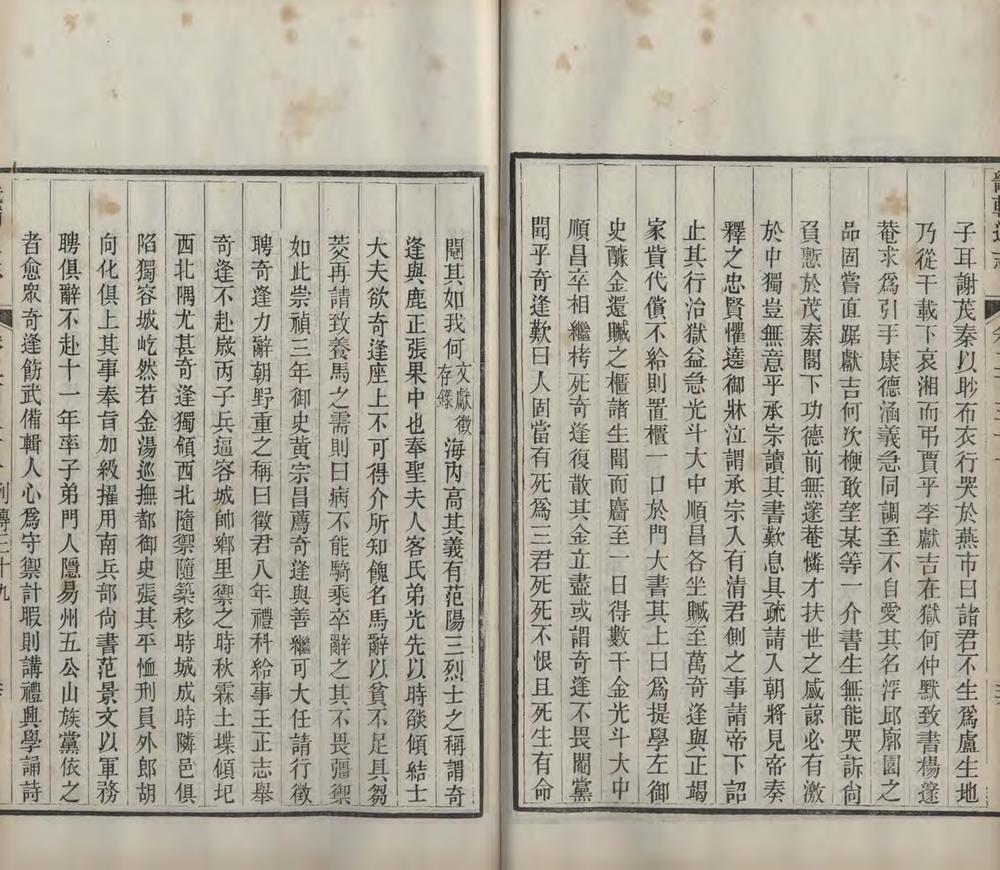 子耳謝茂秦以眇布衣行哭於燕市曰諸君不生爲盧生地
乃從千載下哀湘而弔賈乎李獻吉在獄何仲默致書楊邃
菴求爲引手康德涵義急同調至不自愛其名浮邱廓園之
品固嘗直踞獻吉何次楩敢望某等一介書生無能哭訴尙
負慙於茂秦閣下功德前無邃菴憐才扶世之感諒必有激
於中獨豈無意乎承宗讀其書歎息具疏請入朝將見帝奏
釋之忠賢懼遶御牀泣謂承宗入有清君側之事請帝下詔
止其行治獄益急光斗大中順昌各坐贓至萬奇逢與正竭
家貲代償不給則置櫃一口於門大書其上曰爲提學左御
史醵金還贓之櫃諸生聞而廥至一日得數千金光斗大中
順昌卒相繼栲死奇逢復散其金立盡或謂奇逢不畏閹黨
聞乎奇逢歎曰人固當有死爲三君死死不恨且死生有命
閹其如我何文獻徵存錄海內高其義有范陽三烈士之稱謂奇
逢與鹿正張果中也奉聖夫人客氏弟光先以時燄傾結士
大夫欲奇逢座上不可得介所知餽名馬辭以貧不足具芻
茭再請致養馬之需則曰病不能騎乘卒辭之其不畏彊禦
如此崇禎三年御史黃宗昌薦奇逢與善繼可大任請行徵
聘奇逢力辭朝野重之稱曰徵君八年禮科給事王正志舉
奇逢不赴歲丙子兵逼容城帥鄉里禦之時秋霖土堞傾圮
西北隅尤甚奇逢獨領西北隨禦隨築移時城成時隣邑俱
陷獨容城屹然若金湯巡撫都御史張其平恤刑員外郎胡
向化俱上其事奉旨加級擢用南兵部尙書范景文以軍務
聘俱辭不赴十一年率子弟門人隱易州五公山族黨依之
者愈眾奇逢飭武備輯人心爲守禦計暇則講禮興學誦詩